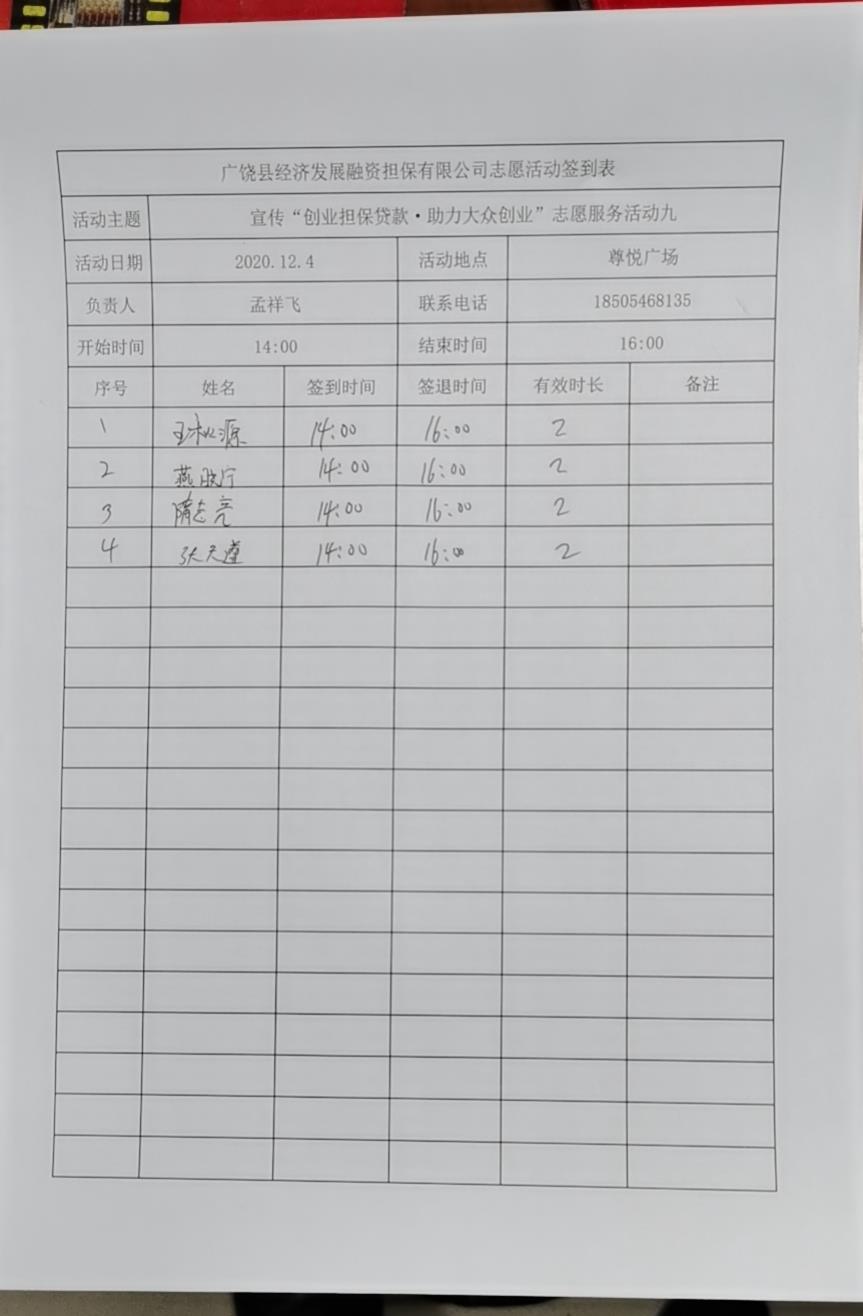 广饶县经济发展融资担保有限公司志愿活动签到表
活动主题 宣传“创业担保贷款·助力大众创业”志愿服务活动九
活动日期 2020.12.4 活动地点 尊悦广场
负责人 孟祥飞 联系电话 18505468135
开始时间 14:00 结束时间 16:00
序号 姓名 签到时间 签退时间 有效时长 备注
1 王秋源 14:00 16:00 2
2 14:00 16:00 2
3 隋志亮 14:00 16:00 2
4 张天瑾 14:00 16:00 2